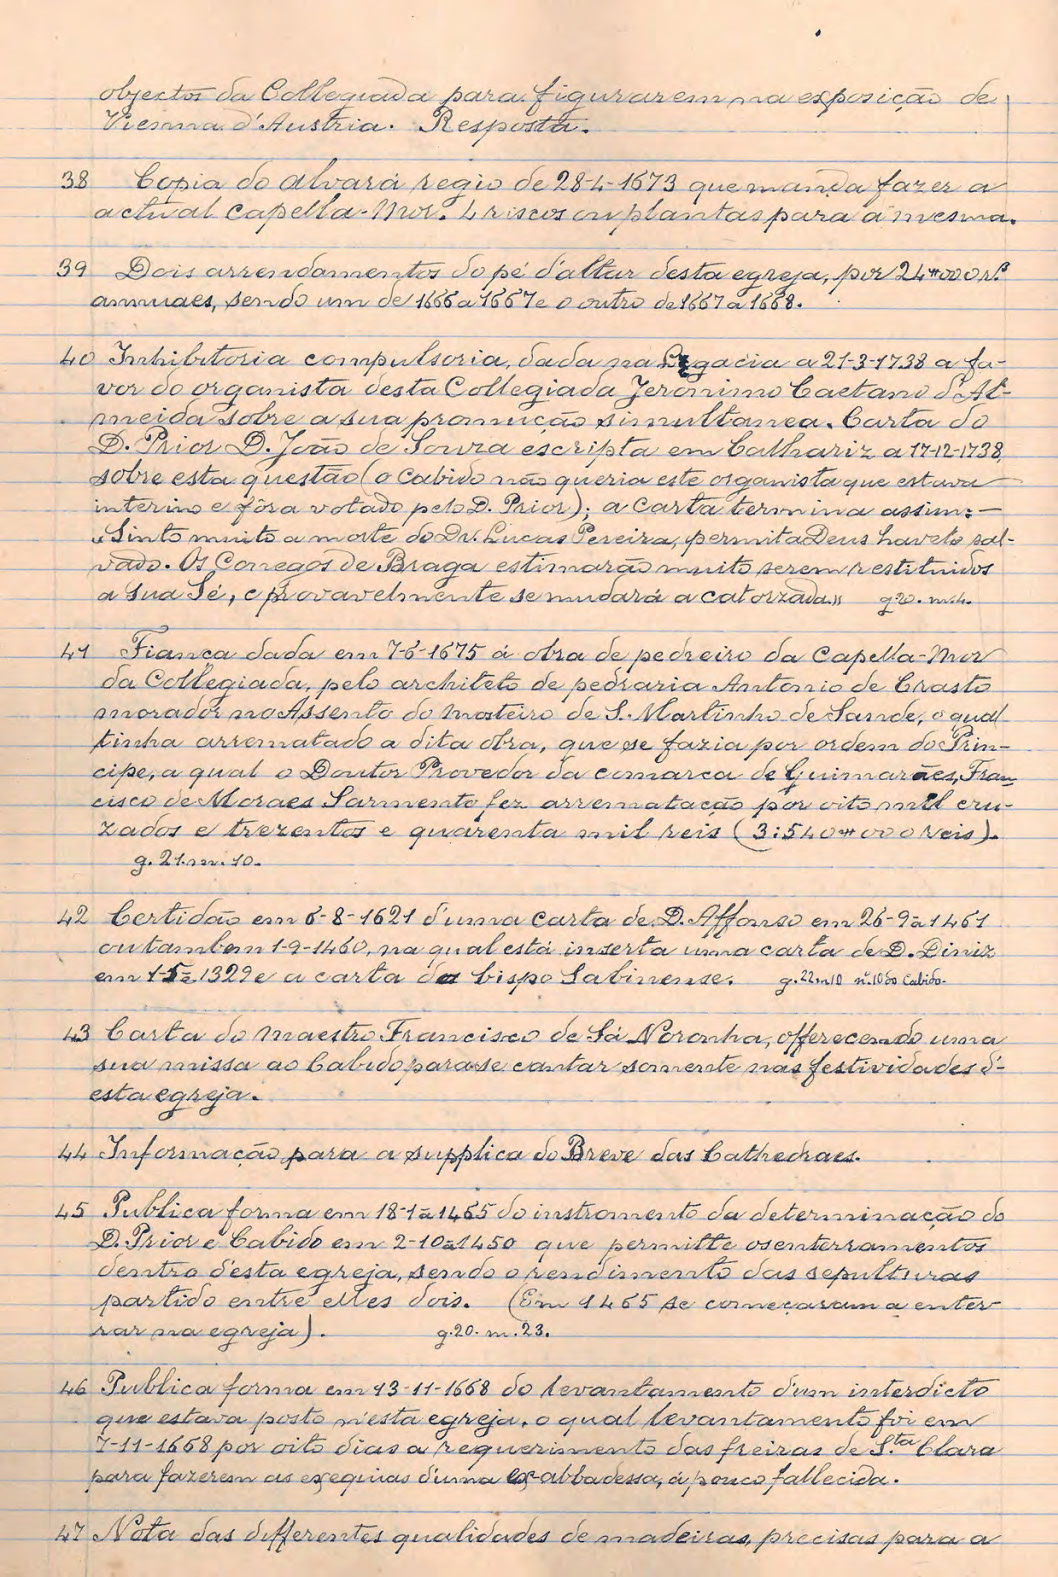 objectos da Collegiada para figurarem na exposição de
Vienna d'Austria. Resposta.
38 Copia do alvará regio de 28-4-1673 que manda fazer a
actual capella-Mor. 4 riscos ou plantas para a mesma.
39 Dois arrendamentos do pé d'altar desta egreja, por 24#000 rs.
annuaes, sendo um de 1666 a 1667 e o outro de 1667 a 1668.
40 Inhibitoria compulsoria, dada na Legacia a 21-3-1738 a fa-
vor do organista desta Collegiada Jeronimo Caetano d'Al-
meida sobre a sua promução simultanea. Carta do
D. Prior D. João de Souza escripta em Calhariz a 17-12-1738,
sobre esta questão (o cabido não queria este organista que estava
interino e fôra votado pelo D. Prior); a carta termina assim:-
"Sinto muito a morte do Dr. Lucas Pereira, permita Deus havelo sal-
vado. Os Conegos de Braga estimarão muito serem restituidos
a sua Sé, e provavelmente se mudará a catorzada" g 20. m. 4.
41 Fiança dada em 7-6-1675 á obra de pedreiro da Capella-Mor
da Collegiada, pelo architeto de pedraria Antonio de Crasto
morador no Assento do mosteiro de S. Martinho de Sande, o qual
tinha arrematado a dita obra, que se fazia por ordem do Prin-
cipe, a qual o Doutor Provedor da comarca de Guimarães, Fran-
cisco de Moraes Sarmento fez arrematação por oito mil cru-
zados e trezentos e quarenta mil reis (3:540#000 Reis).
g. 21. m. 10.
42 Certidão em 6-8-1621 d'uma carta de D. Affonso em 26-9-1461
ou tambem 1-9-1460, na qual está inserta uma carta de D. Diniz
em 1-5-1329 e a carta do bispo Sabinense. g. 22 m 10 nº 10 do Cabido.
43 Carta do maestro Francisco de Sá Noronha, offerecendo uma
sua missa ao Cabido para se cantar somente nas festividades d'
esta egreja.
44 Informação para a supplica do Breve das Cathedraes.
45 Publica forma em 18-1-1465 do instromento da determinação do
D. Prior e Cabido em 2-10-1450 que permitte os enterramentos
dentro d'esta egreja, sendo o rendimento das sepulturas
partido entre elles dois. (Em 1465 se começaram a enter-
rar na egreja). g. 20. m. 23.
46 Publica forma em 13-11-1668 do levantamento d'um interdicto
que estava posto n'esta egreja, o qual levantamento foi em
7-11-1668 por oito dias a requerimento das freiras de S.ta Clara
para fazerem as exequias d'uma ex-abbadessa, á pouco fallecida.
47 Nota das differentes qualidades de madeiras, precisas para a